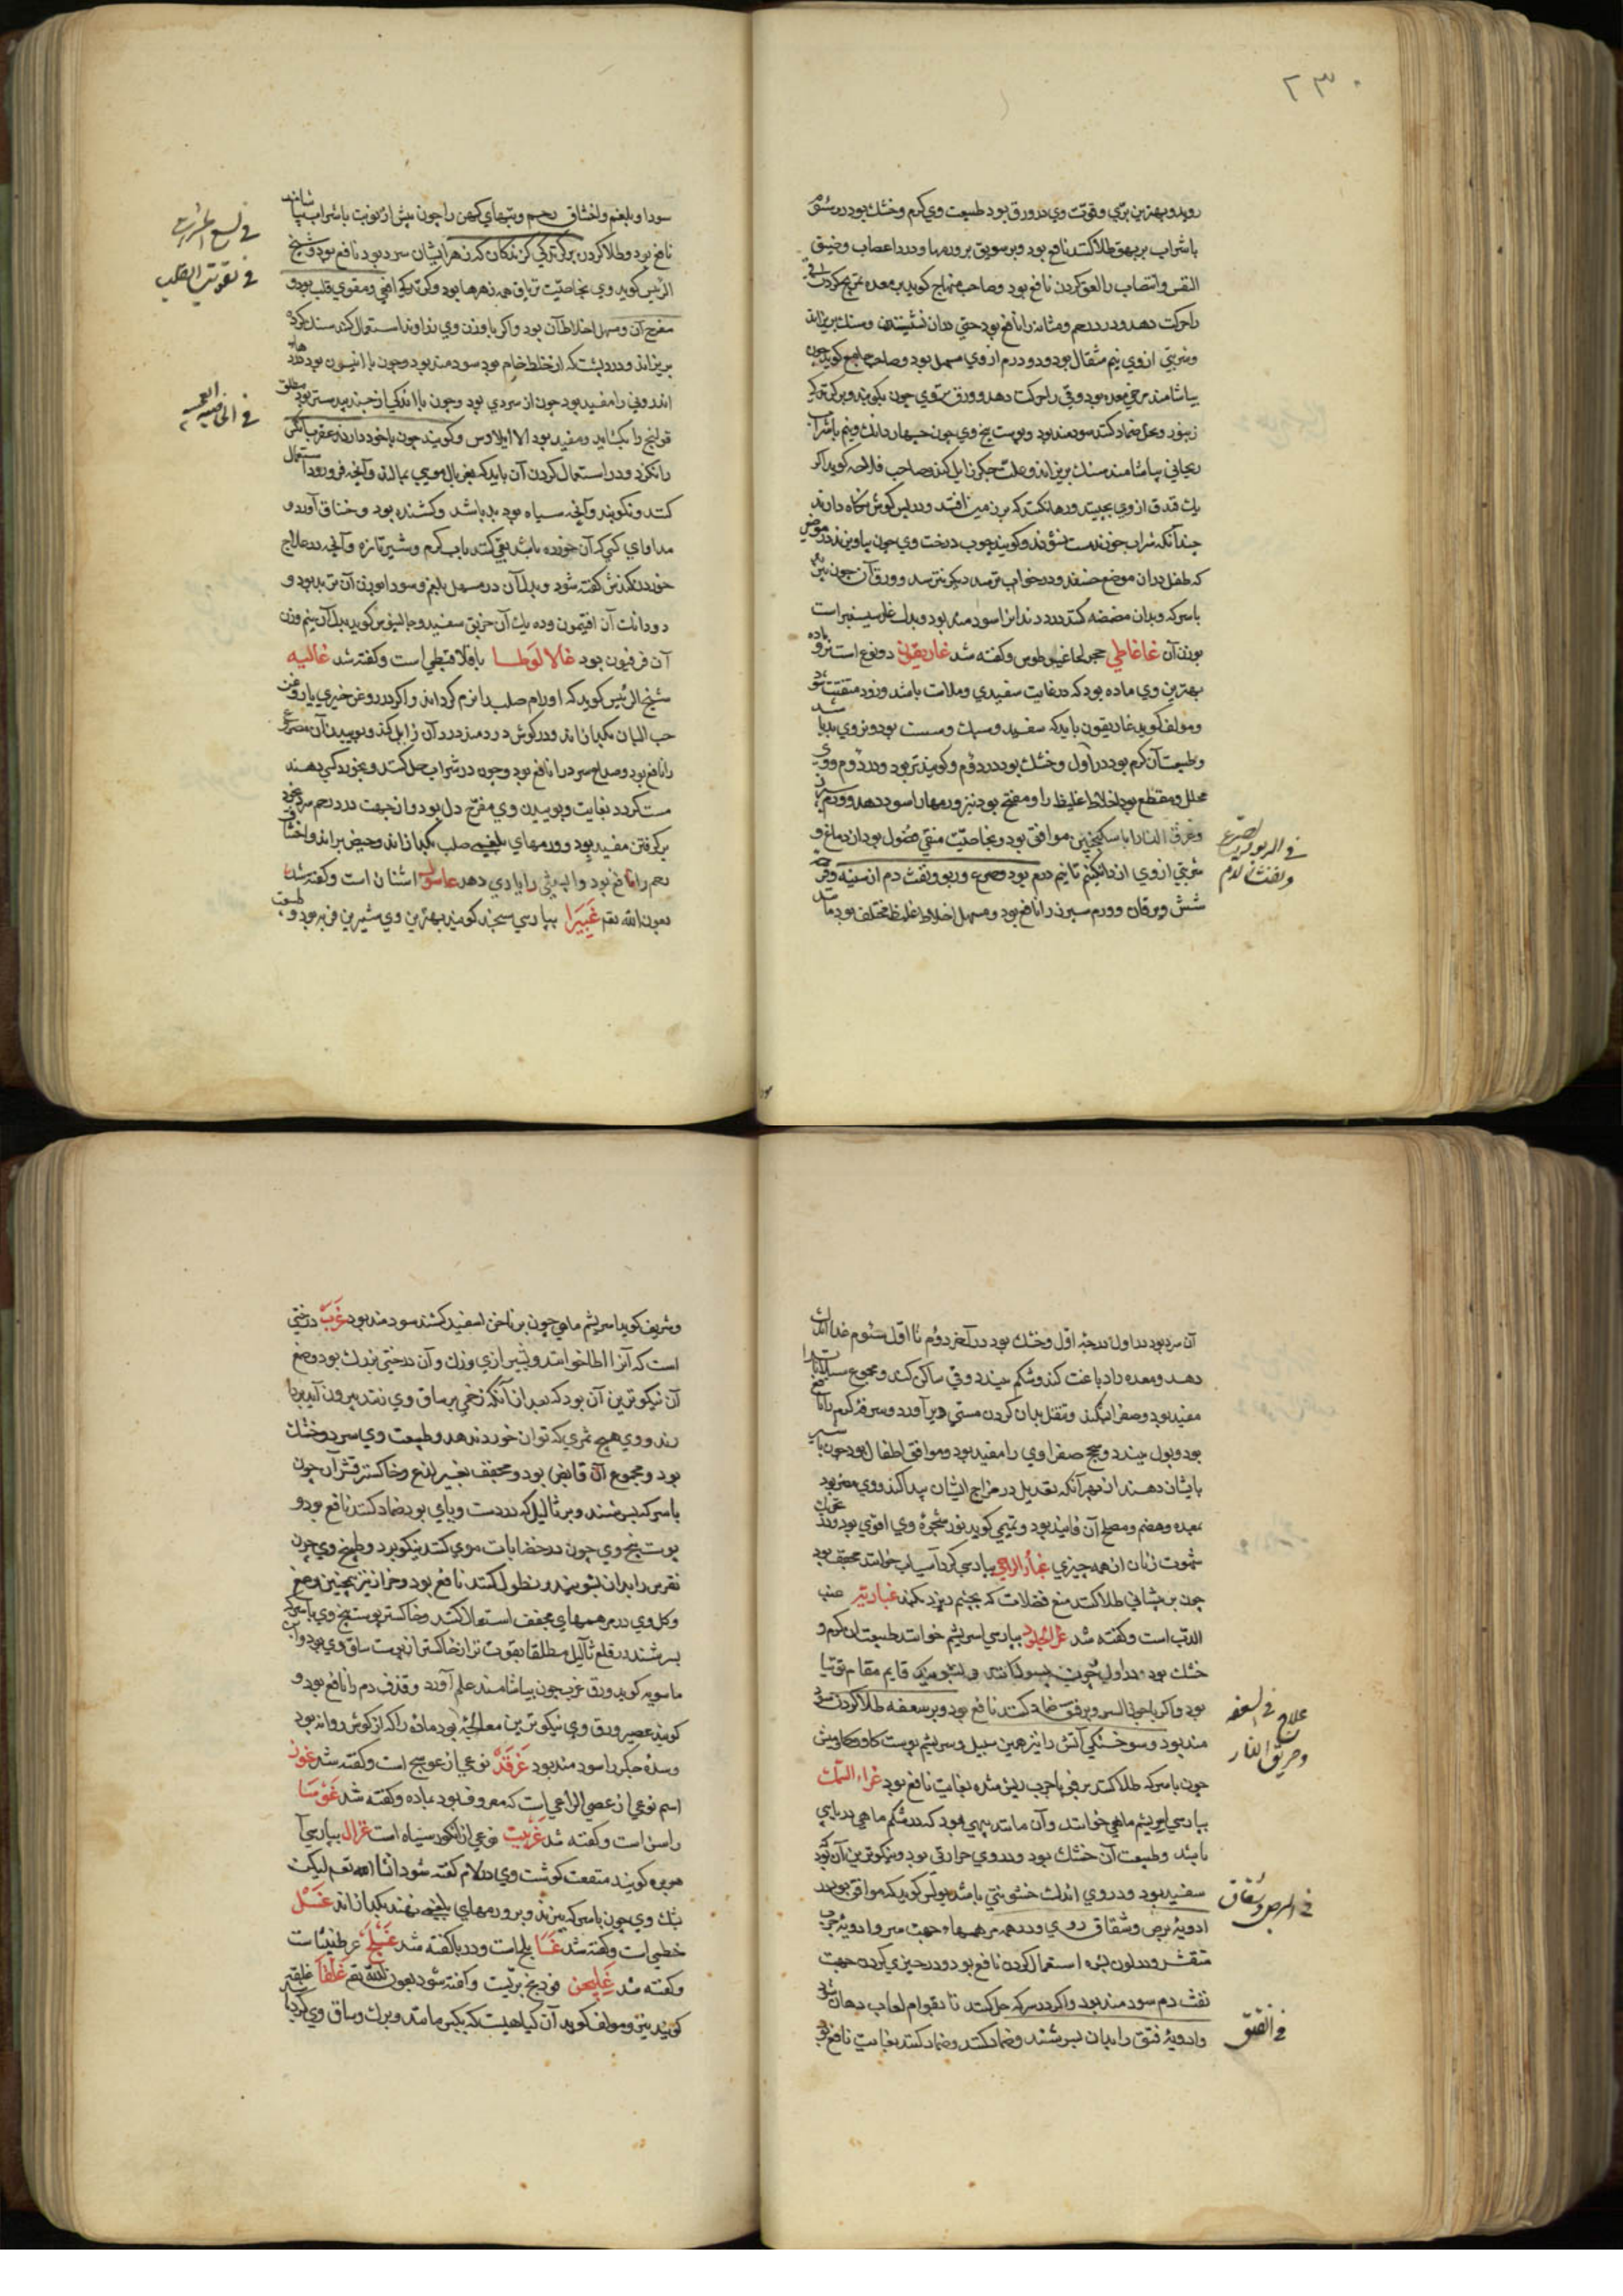 ۲۳۰
روید و بهترین بری و قوت وی در ورق بود طبیعت وی گرم و خشک بود در سئوم
با شراب بر بهق طلا کنند نافع بود و بر سوپق بر ورمها و درد اعصاب و ضیق
النفس و انتصاب را لعق کردن نافع بود و صاحب منهاج گوید بر معده تمریخ کردن قی
را حرکت دهد و درد رحم و مثانه را نافع بود حتی در آن نشستن و سنک بریزاند
و شربتی از وی نیم مثقال بود و دو درم از وی مسهل بود و صاحب جامع گوید چون
بیاشامند مرخی معده بود و قی را حرکت دهد و ورق وی چون بکوبند و بر گزیدگی
زنبور و نحل ضماد کنند سودمند بود و پوست بیخ وی چون چهار دانک و نیم با شراب
ریحانی بیاشامند سنک بریزاند و علت جگر زایل کند و صاحب فلاحه گوید اگر
یک فندق از وی بچینند و رها نکنند که بر زمین افتد و در پس گوش نگاه دارند
چندانکه شراب خورند مست نشوند و گویند چوب درخت وی چون بیاویزند در موضعی
که طفل در آن موضع خسفد و در خواب ترسد دیگر نترسد و ورق آن چون بپزند
با سرکه و بدان مضمضه کنند درد دندانرا سودمند بود و بدل غار سیسنبر است
بوزن آن غاغاطی حجر لغاغیطوس و گفته شد غاریقون دو نوع است نر و ماده
بهترین وی ماده بود که در غایت سفیدی و ملاست باشد و زود متفتت شود
و مولف گوید غاریقون باید که سفید و سبک و سست بود و نر وی بد باشد
و طبیعت آن گرم بود در اول و خشک بود در دوم و گویند تر بود در دوم و وی
محلل و مقطع بود اخلاط غلیظ را و مفتح بود نیز ورمها را سود دهد و ورم سپرز
و عرق النسا را با سکنجبین موافق بود و بخاصیت منقی فضول بود از دماغ و
شربتی از وی از دانگی تا نیم درم بود و صرع و ربو و نفث دم از سینه و قرحه
شش و یرقان و ورم سپرز را نافع بود و مسهل اخلاط غلیظ مختلف بود مانند
فی الربو و الصرع
و نفث الدم
سودا و بلغم و اختناق رحم و تبهای کهن را چون پیش از نوبت با شراب بیاشامند
نافع بود و طلا کردن بر گزیدگی گزندگان که زهر ایشان سرد بود نافع بود و شیخ
الرئیس گوید وی بخاصیت تریاق همه زهرها بود و گزیدگی افعی و مقوی قلب بود و
مفرح آن و مسهل اخلاط آن بود و اگر با وزن وی زراوند استعمال کنند سنک گرده
بریزاند و درد پشت که از خلط خام بود سودمند بود و چون با انیسون بود دردهای
اندرونی را مفید بود چون از سردی بود و چون با اندکی از جندبیدستر بود مطلق
قولنج را بگشاید و مفید بود الا ایلاوس و گویند چون با خود دارند عقرب آنکس
را نگزد و در استعمال کردن آن باید که بغربال مویی بمالند و آنچه فرو رود استعمال
کنند و نکوبند و آنچه سیاه بود بد باشد و کشنده بود و خناق آورد و
مداوای کسی که آن خورده باشد بقی کنند باب گرم و شیر تازه و آنچه در علاج
خوردن کندش گفته شود و بدل آن در مسهل بلغم و سودا بوزن آن تربد بود و
دو دانک آن افتیمون و ده یک آن خربق سفید و جالینوس گوید بدل آن نیم وزن
آن فرفیون بود غالالوطا باقلا قبطی است و گفته شد غالیه
شیخ الرئیس گوید که اورام صلب را نرم گرداند و اگر در روغن خیری یا روغن
حب البان بگدازند و در گوش دردمند درد آن زایل کند و بوییدن آن مصروع
را نافع بود و صداع سرد را نافع بود و چون در شراب حل کنند و بخورد کسی دهند
مست گردد بغایت و بوییدن وی مفرح دل بود و از جهت درد رحم سرد بخود
بر گرفتن مفید بود و ورمهای بلغمی صلب بگدازاند و حیض براند و اختناق
رحم را نافع بود و آبستنی را یاری دهد غاسول اشنان است و گفته شد
بعون الله تعم غبیرا بپارسی سنجد گویند بهترین وی شیرین فربه بود و طبیعت
فی لسع الحشرات
فی تقویت القلب
آن سرد بود در اول درجه اول و خشک بود در آخر دوم تا اول سئوم غذا اندک
دهد و معده را دباغت کند و شکم ببندد و قی ساکن کند و مجموع سیلانات را
مفید بود و صفرا بشکند و تنقل بدان کردن مستی دیر آورد و سرفه گرم را نافع
بود و بول ببندد و سحج صفراوی را مفید بود و موافق اطفال بود چون با شیر
بایشان دهند از بهر آنکه تعدیل در مزاج ایشان پیدا کند و وی مضر بود
بمعده و هضم و مصلح آن فانید بود و تمیمی گوید نور شجره وی اقوی بود در تحریک
شهوت زنان از همه چیزی غبار الرحی بپارسی گرد آسیاب خوانند مجفف بود
چون بر پیشانی طلا کنند منع فضلات که بچشم ریزد بکند غبارتیر عنب
الدب است و گفته شد غراء الجلود بپارسی سریشم خوانند طبیعت آن گرم و
خشک بود در اول چون بسوزانند و بشویند قایم مقام توتیا
بود و اگر با جوز السرو بر فتق ضماد کنند نافع بود و بر سعفه طلا کردن سود
مند بود و سوختگی آتش را نیز همین سبیل و سریشم پوست گاو و گاومیش
چون با سرکه طلا کنند بر قوبا و جرب ریش شده بغایت نافع بود غراء السمک
بپارسی سریشم ماهی خوانند و آن مانند پیهی بود که در شکم ماهی دریایی
باشد و طبیعت آن خشک بود و در وی حرارتی بود و نیکوترین آن بود که
سفید بود و در وی اندک خشونتی باشد بولس گوید که موافق بود در
ادویه برص و شقاق روی و در همه مرهمها و جهت سر و ادویه جرب
متقشر و در لون بشره استعمال کردن نافع بود و در چیزی کردن جهت
نفث دم سودمند بود و اگر در سرکه حل کنند تا بقوام لعاب دهان شود
و ادویه فتق را بدان بسرشند و ضماد کنند و ضماد کنند بغایت نافع بود
علاج فی السعفه
و حریق النار
فی البرص و شقاق
فی الفتق
و شریف گوید سریشم ماهی چون بر ناخن سفید کشند سودمند بود غرب درختی
است که آنرا اطلا خوانند و بشیرازی وزک و آن درختی بزرک بود و صمغ
آن نیکوترین آن بود که بعد از آنکه زخمی بر ساق وی زنند بیرون آید بردا
رند و وی هیچ ثمری که توان خورد ندهد و طبیعت وی سرد و خشک
بود و مجموع آن قابض بود و مجفف بغیر لذع و خاکستر قشر آن چون
با سرکه بسرشند و بر ثالیل که در دست و پای بود ضماد کنند نافع بود و
پوست بیخ وی چون در خضابات موی کنند نیکو بود و طبیخ وی چون
نقرس را بدان بشویند و نطول کنند نافع بود و خزاز نیز همچنین و صمغ
و گل وی در مرهمهای مجفف استعمال کنند و خاکستر پوست بیخ وی با سرکه
بسرشند در قلع ثآلیل مطلقا بقوت تر از خاکستر از پوست ساق وی بود و ابن
ماسویه گوید ورق غرب چون بیاشامند علم آورد و قذف دم را نافع بود و
گویند عصیر ورق وی نیکوترین معالجه بود ماده را که از گوش روانه بود
و سده جگر را سودمند بود غرقد نوعی از عوسج است و گفته شد غرز
اسم نوعی از عصی الراعی است که معروف بود بماده و گفته شد غوسا
راسن است و گفته شد غربیب نوعی از انگور سیاه است غزال بپارسی
آهوبره گویند منفعت گوشت وی در لام گفته شود انشا الله تعم لیکن
پشک وی چون با سرکه بپزند و بر ورمهای بلغمی نهند بگدازاند غسل
خطمی است و گفته شد غسا بلح است و در با گفته شد غسلج عرطنیثا است
و گفته شد غلیجن فودنج بریست و گفته شود بعون الله تعم غلقا غلقه
گویند نیز و مولف گوید آن گیاهیست که بکبر ماند و برک و ساق وی گرد باشد